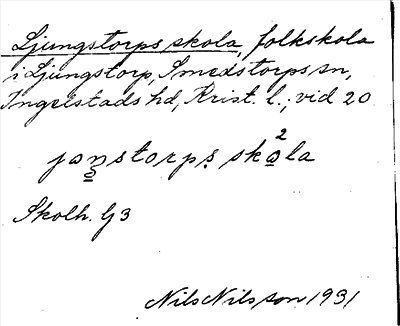 Ljungstorps skola, folkskola
i Ljungstorp, Smedstorps sn,
Ingelstads hd, Krist. l.; vid 20
skola
Skolh. G3
Nils Nilsson 1931